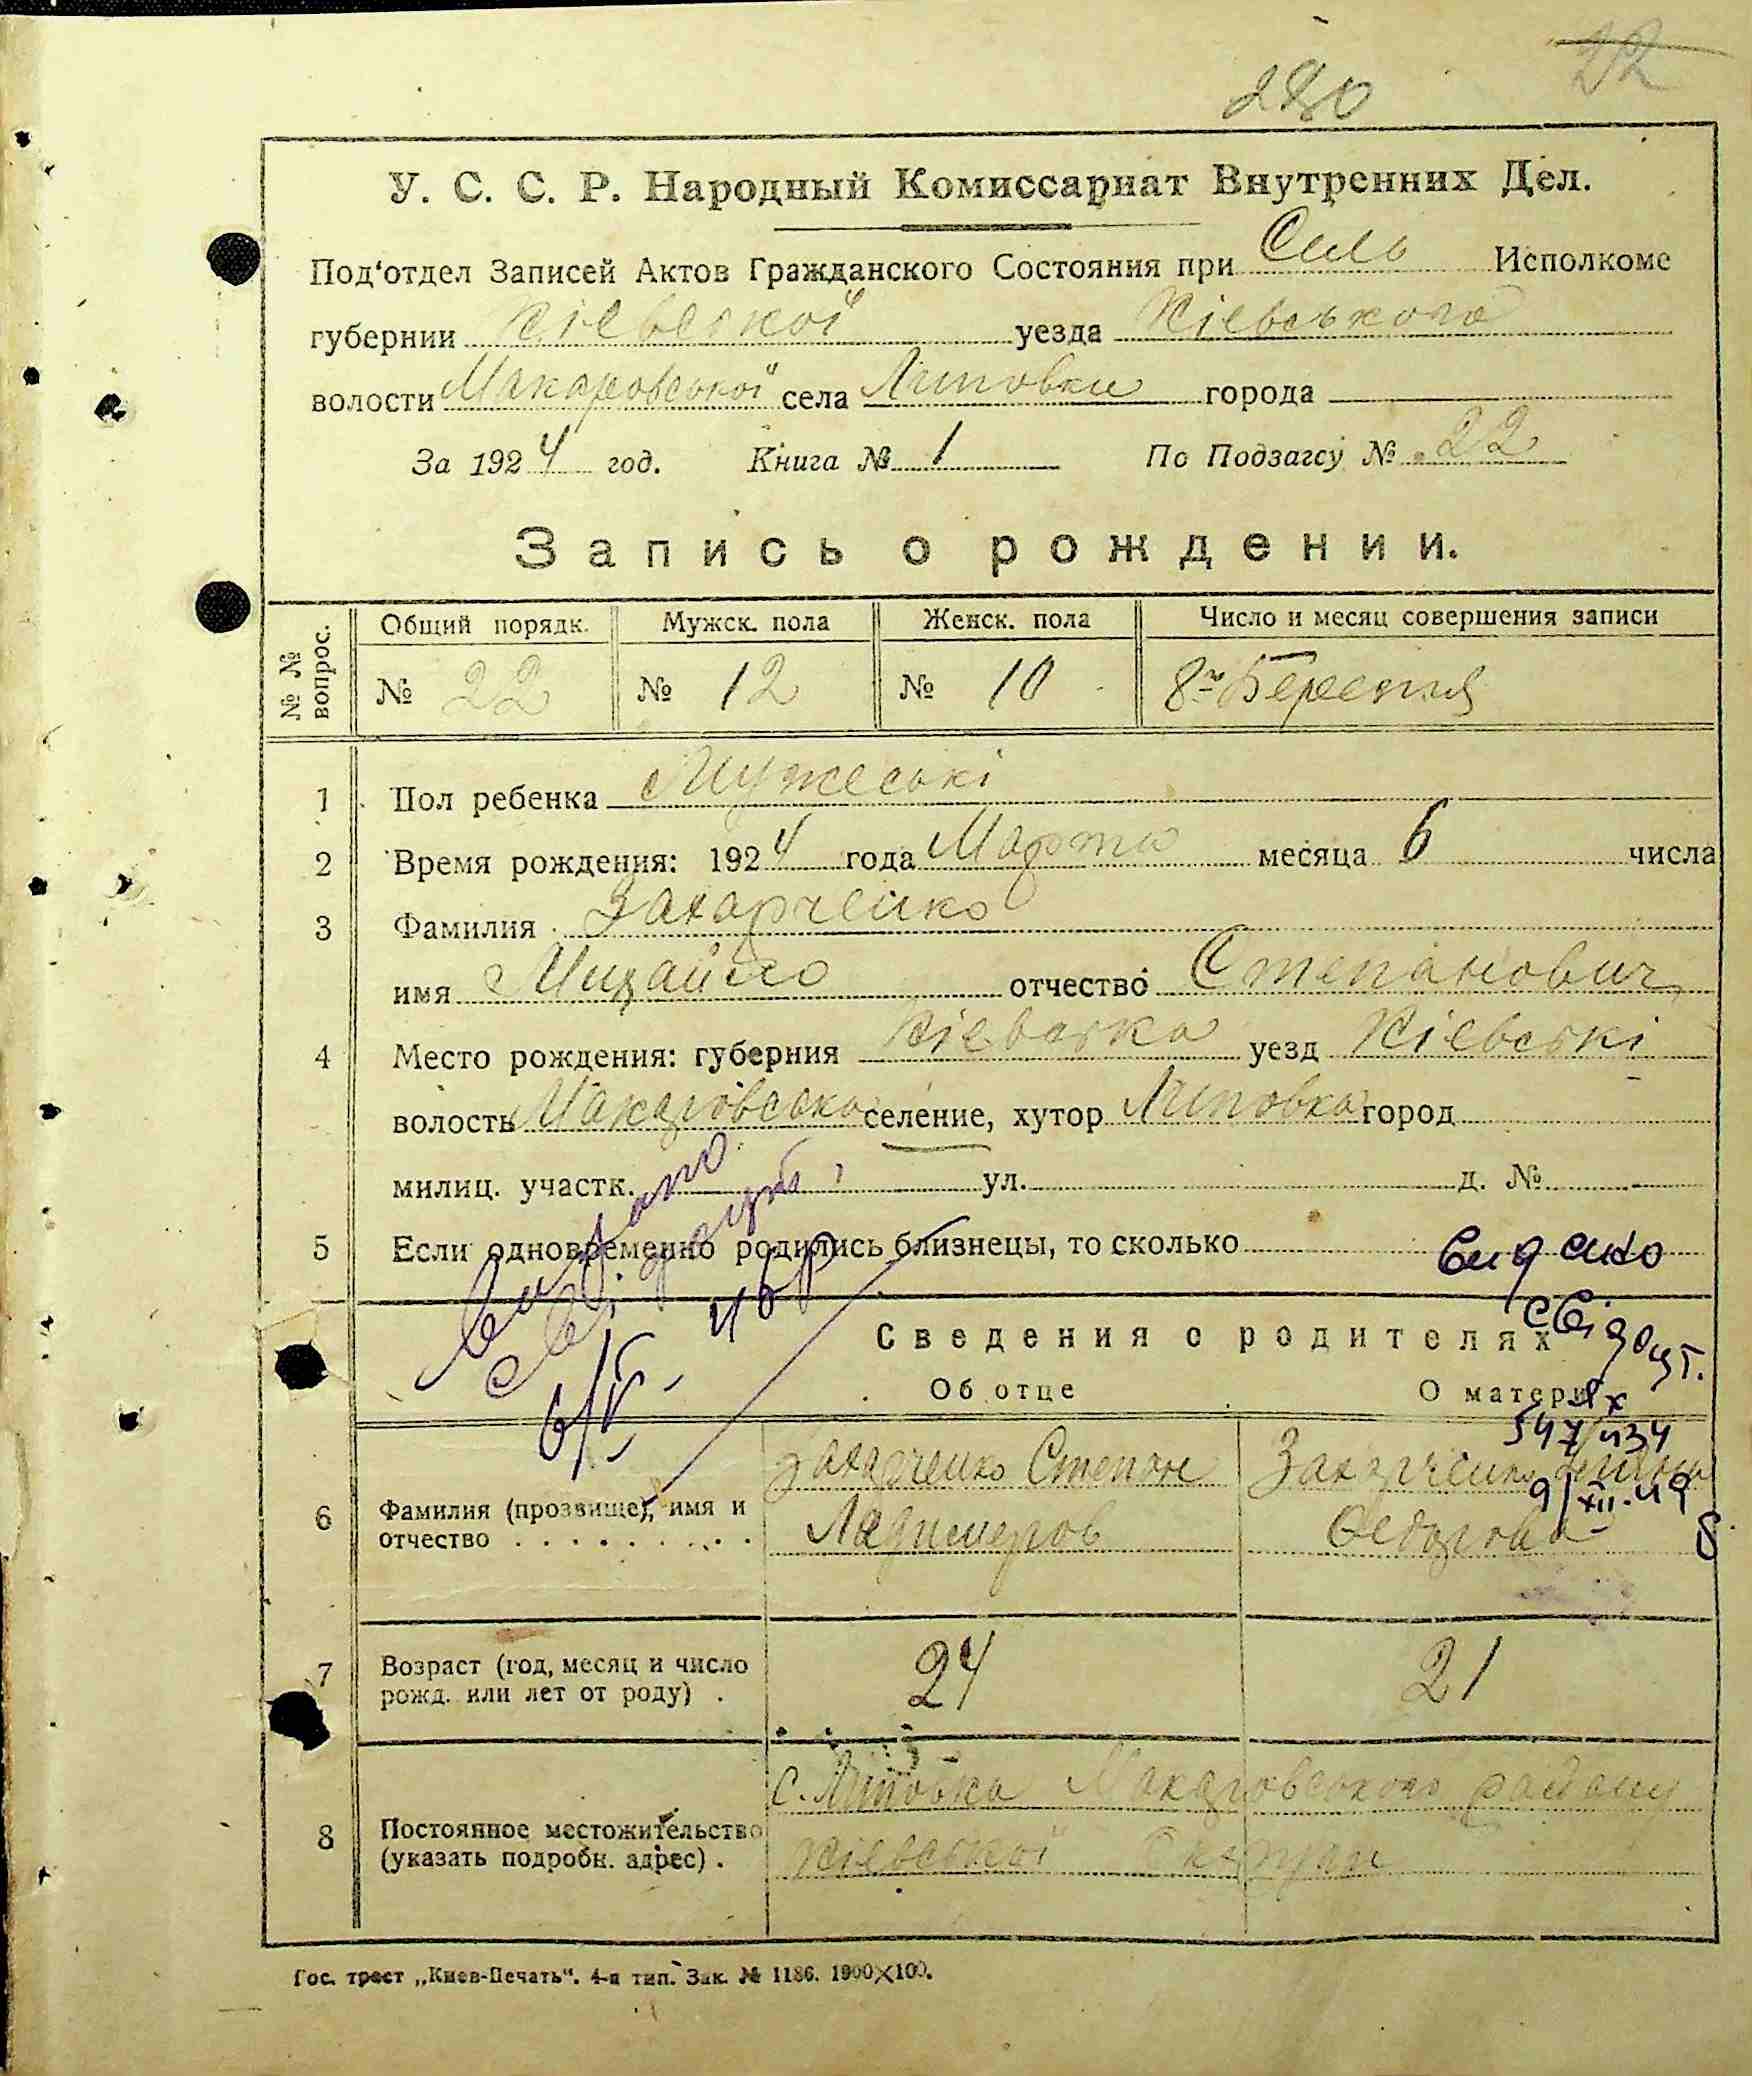 280
22
У. С. С. Р. Народный Комиссариат Внутренних Дел.
Под'отдел Записей Актов Гражданского Состояния при Сель Исполкоме
губернии Кіевської уезда Кіевського
волости Макаровської села Липовки города
За 1924 год. Книга № 1 По Подзагсу № 22
Запись о рождении.
№ № вопрос.
Общий порядк. Мужск. пола Женск. пола Число и месяц совершения записи
№ 22 № 12 № 10 8го Березня
1 Пол ребенка Мужеські
2 Время рождения: 1924 года Марта месяца 6 числа
3 Фамилия Захарченко
имя Михайло отчество Степанович
4 Место рождения: губерния Кіевська уезд Кіевські
волость Макарівська селение, хутор Липовка город
милиц. участк. ул. д. №
5 Если одновременно родились близнецы, то сколько
Видано
Видано
свідоцт.
Сведения о родителях
Об отце О матери
547434
9/XII.49
6 Фамилия (прозвище), имя и отчество
Захарченко Степан Захарченко
Ладимеров Федорова
7 Возраст (год, месяц и число рожд. или лет от роду) . 24 21
8 Постоянное местожительство (указать подробн. адрес) .
с. Липовка Макаровського району
Кіевської Округи
Гос. трест „Киев-Печать". 4-я тип. Зак. № 1186. 1900×100.